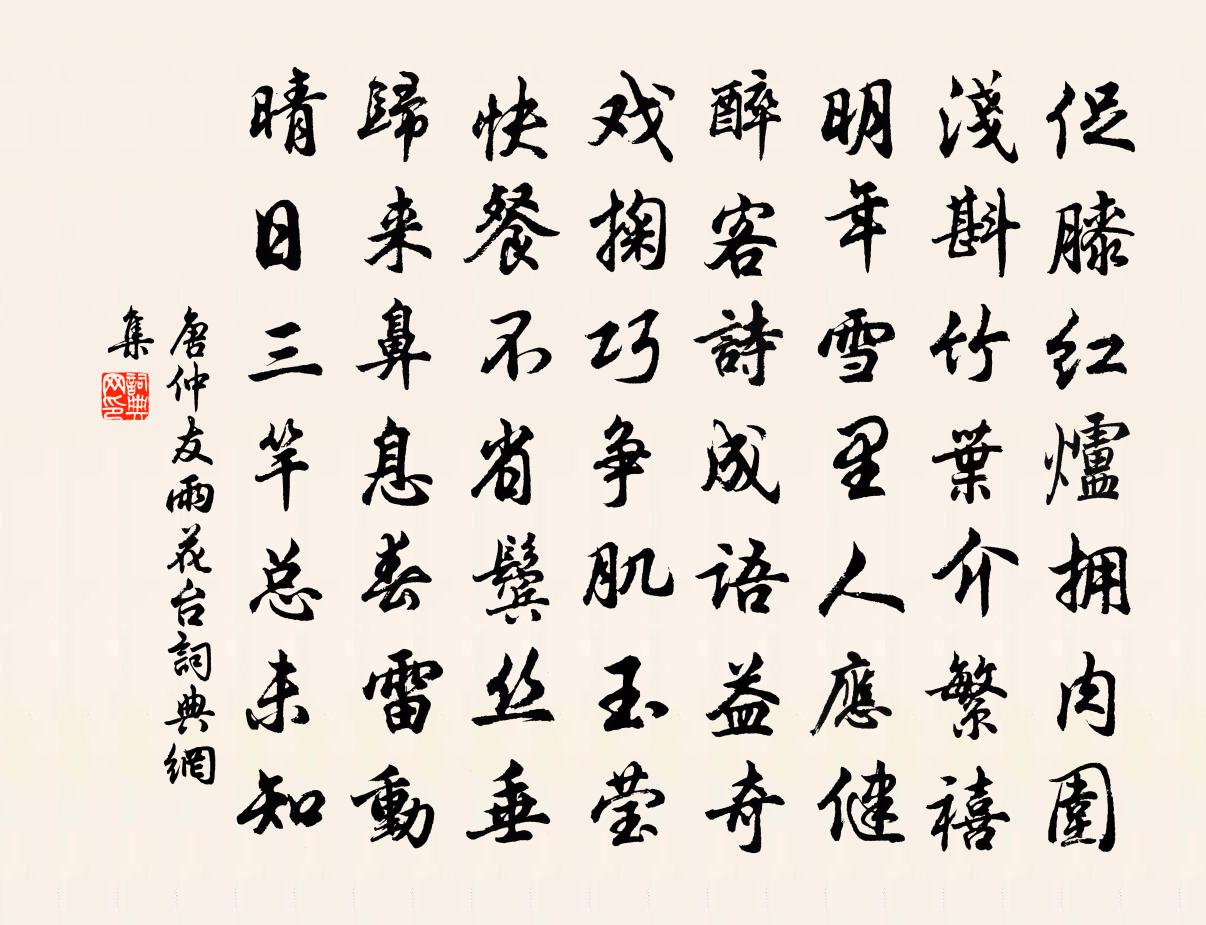 促膝红爐拥肉圍
淺斟竹葉介繁禧
明年雪里人應健
醉客詩成語益奇
戏掬巧争肌玉莹
快餐不省鬓丝垂
歸来鼻息春雷動
晴日三竿总未知
唐仲友雨花台詞典網
集
詞典网印